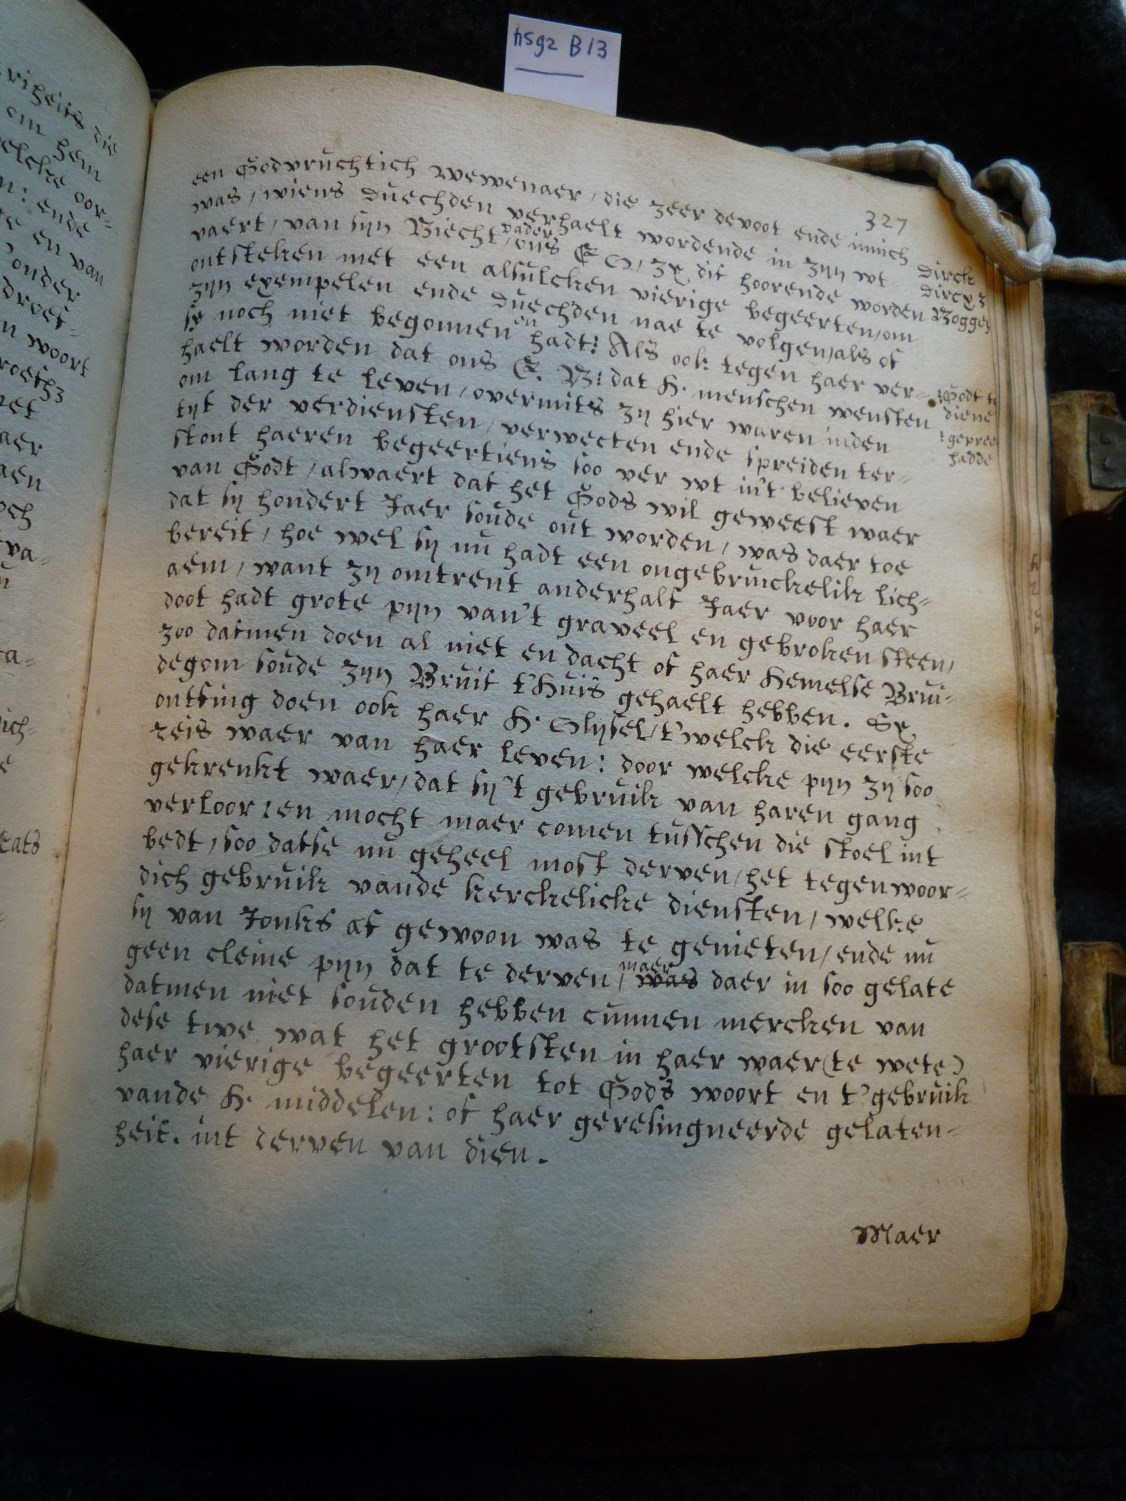 hsg2 B13
327
een Godvruchtich Wewenaer / die zeer devoot ende innich
was / wiens duechden verhaelt wordende in zyn wt-
vaert / van syn Biecht vader / ons E M / zy dit hoorende worden
ontsteken met een alsulcken vierige begeerten / om
zyn exempelen ende duechden nae te volgen / als of
sy noch niet begonnen en hadt: Als ook tegen haer ver-
haelt worden dat ons E. B: dat H. menschen wensten
om lang te leven / overmits zy hier waren inden
tyt der verdiensten / verwecten ende spreiden ter-
stont haeren begeertiens soo ver wt in't believen
van Godt / alwaert dat het Gods wil geweest waer
dat sy hondert Jaer soude out worden / was daer toe
bereit / hoe wel sy nu hadt een ongebruickelik lich-
aem / want zy omtrent anderhalf Jaer voor haer
doot hadt grote pyn van't graveel en gebroken steen /
zoo datmen doen al niet en dacht of haer Hemelse Brui-
degom soude zyn Bruit t'Huis gehaelt hebben. Sy
ontfing doen ook haer H. Olysel / t'welck die eerste
reis waer van haer leven: door welcke pyn zy soo
gekrenkt waer / dat sy 't gebruik van haren gang
verloor: en mocht maer comen tusschen die stoel int
bedt / soo datse nu geheel most derven / het tegenwoor-
dich gebruik vande kerckelicke diensten / welke
sy van Jonks af gewoon was te genieten / ende nu
geen cleine pyn dat te derven / maer was daer in soo gelate
datmen niet souden hebben cunnen mercken van
dese twe wat het grootsten in haer waer (te wete)
haer vierige begeerten tot Gods woort en t'gebruik
vande H. middelen: of haer geresingneerde gelaten-
heit. int derven van dien.
Maer
Dirck
Dircxz
Bogges
Godt te
diene
hadde